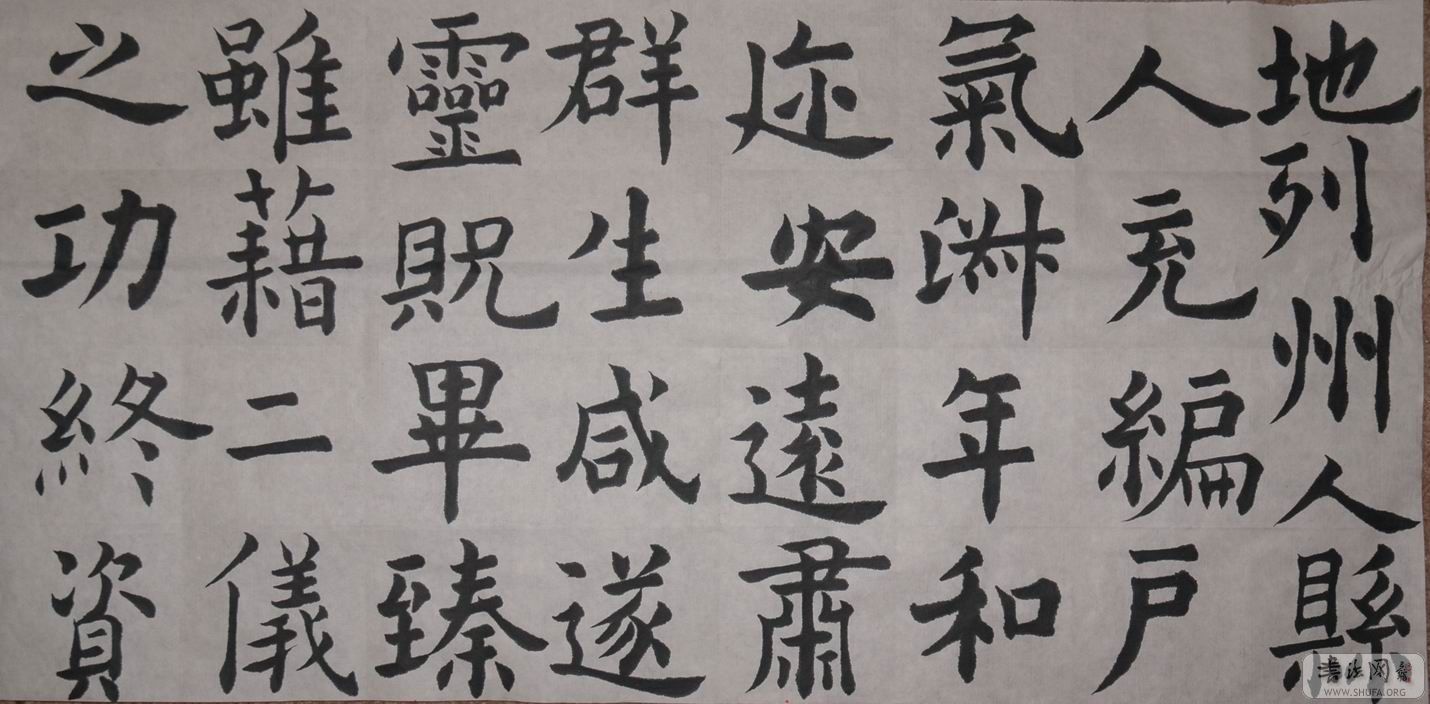 地列州人縣
人充編戸
氣淑年和
迩安遠肅
群生咸遂
靈貺畢臻
雖藉二儀
之功終資
書法网
WWW.SHUFA.ORG